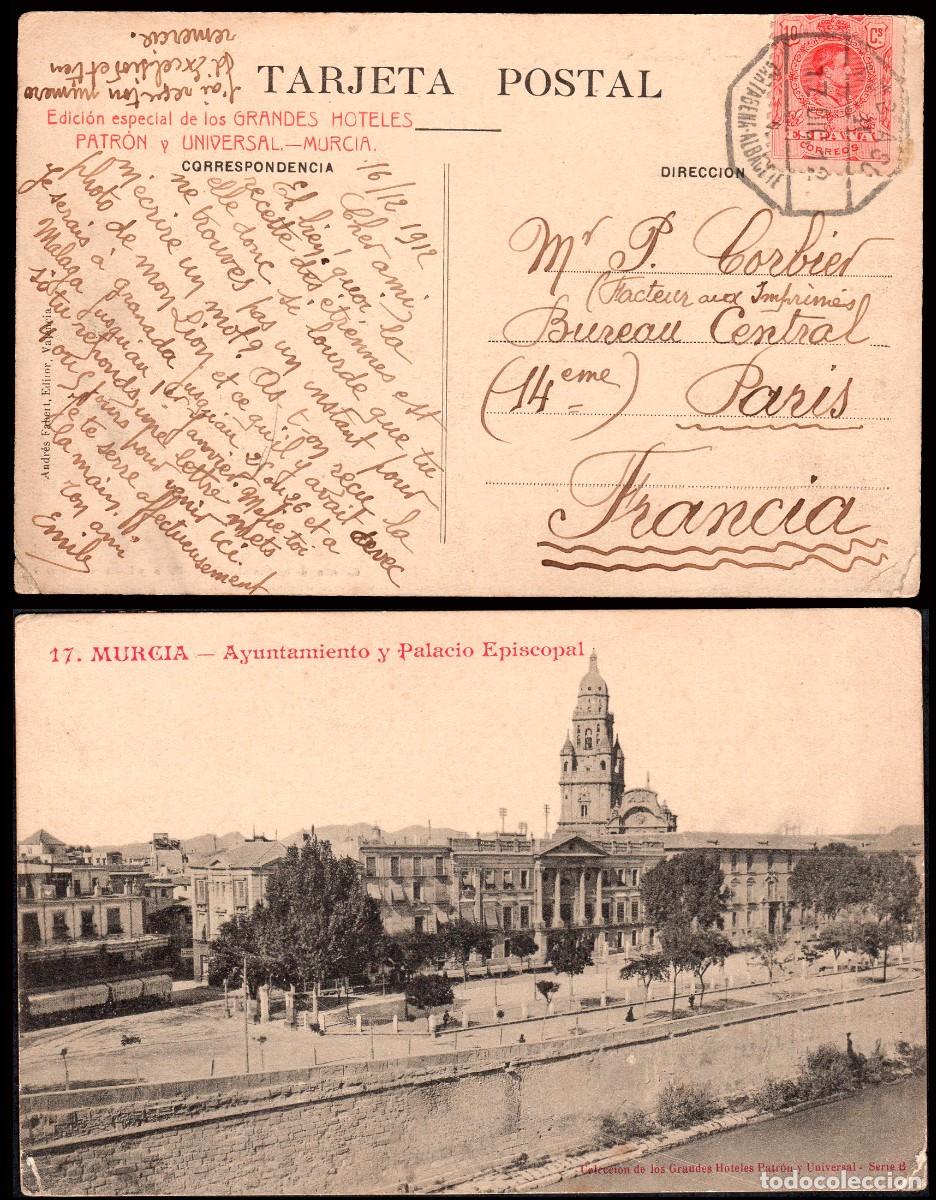 TARJETA POSTAL
Edición especial de los GRANDES HOTELES
PATRÓN y UNIVERSAL.—MURCIA.
CORRESPONDENCIA
DIRECCION
10 Cs
ESPAÑA
CORREOS
CARTAGENA-ALBACETE
17 DIC 12
J'ai reçu ton numéro
d'Excelsior et t'en
remercie.
16/12 1912
Cher ami,
Eh bien, quoi, la
recette des étrennes est
elle donc si lourde que tu
ne trouves pas un instant pour
m'écrire un mot? As-tu reçu la
photo de mon Lion et ce qu'il y avait avec
Je serais à granada jusqu'au 25 ou 26 et à
Malaga jusqu'au 1er janvier.
si tu réponds une lettre mets
4 ou 5 jours pour venir ici.
Je te serre affectueusement
la main.
Ton ami
Emile
Andrés Fabert, Editor, Valencia
Mr P. Corbier
(Facteur aux Imprimés)
Bureau Central
(14eme) Paris
Francia
17. MURCIA — Ayuntamiento y Palacio Episcopal
Colección de los Grandes Hoteles Patrón y Universal - Serie B
todocoleccion